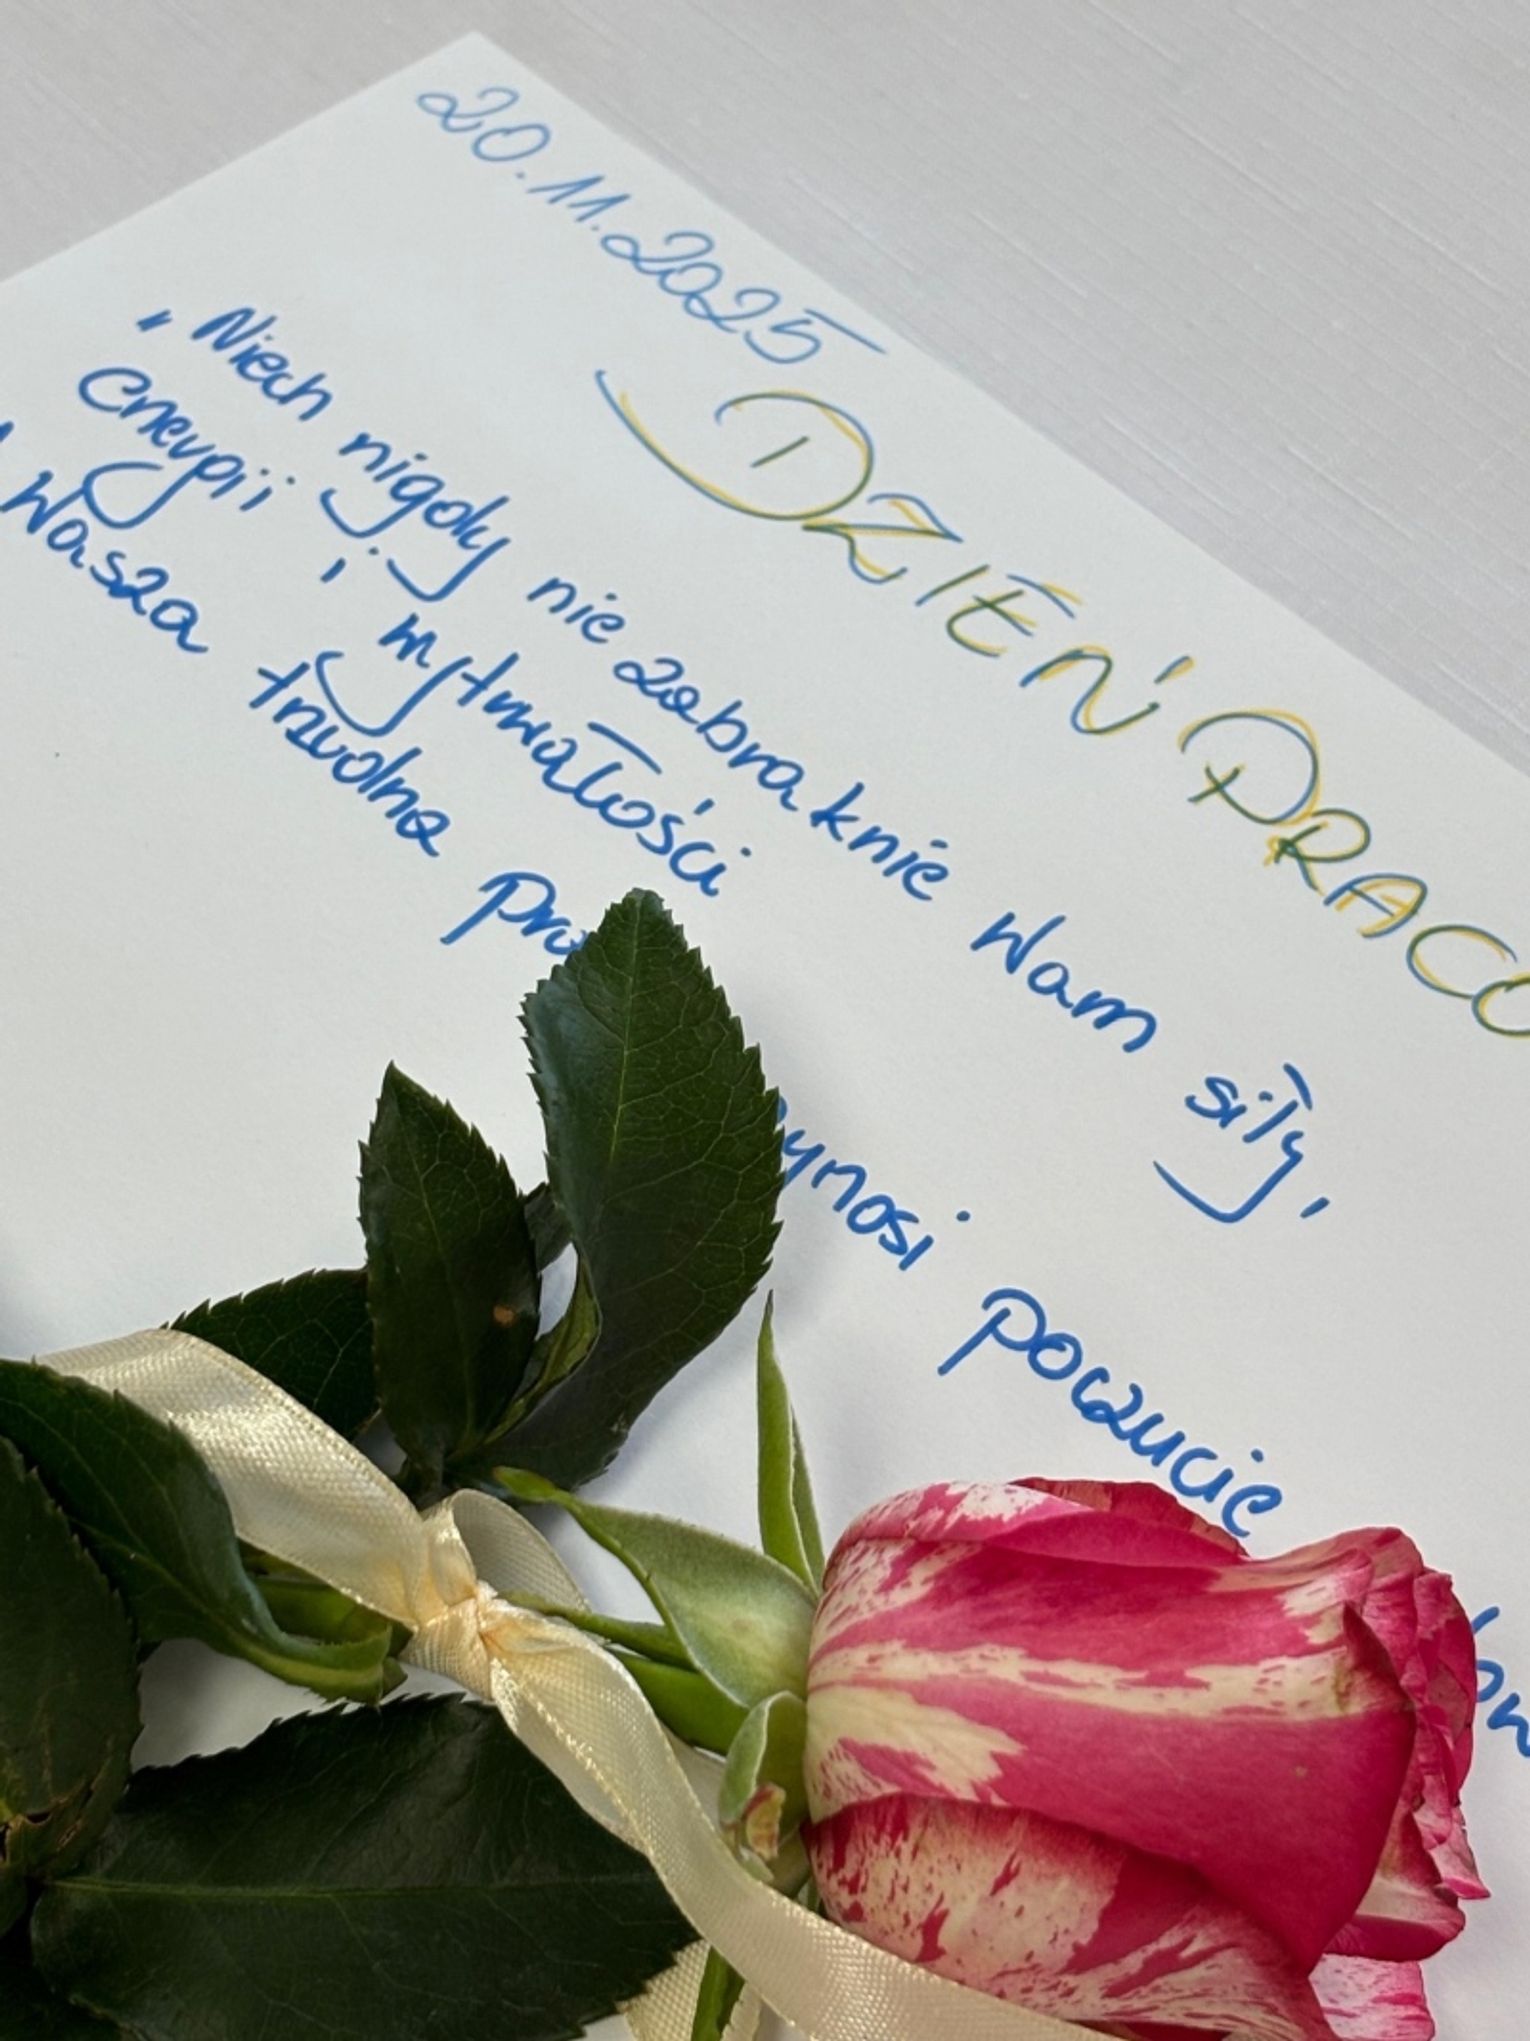 20.11.2025
DZIEŃ PRACO
„Niech nigdy nie zabraknie Wam siły,
energii i wytrwałości
Wasza trudna pra ynosi poczucie